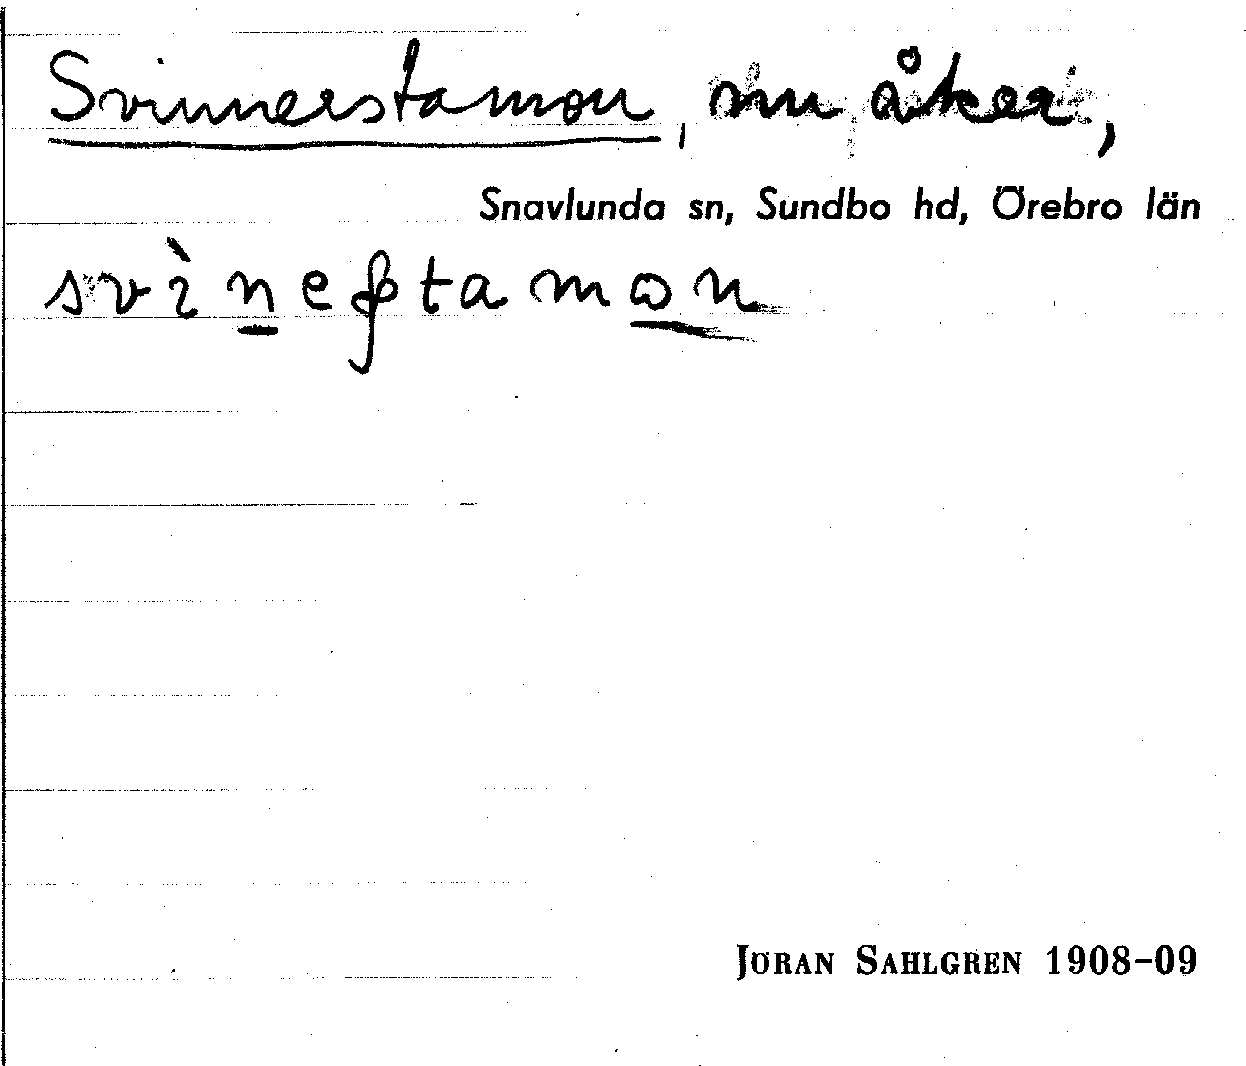 Svinnerstamon, nu åker,
Snavlunda sn, Sundbo hd, Örebro län
svìneʂtamɷn
JÖRAN SAHLGREN 1908-09